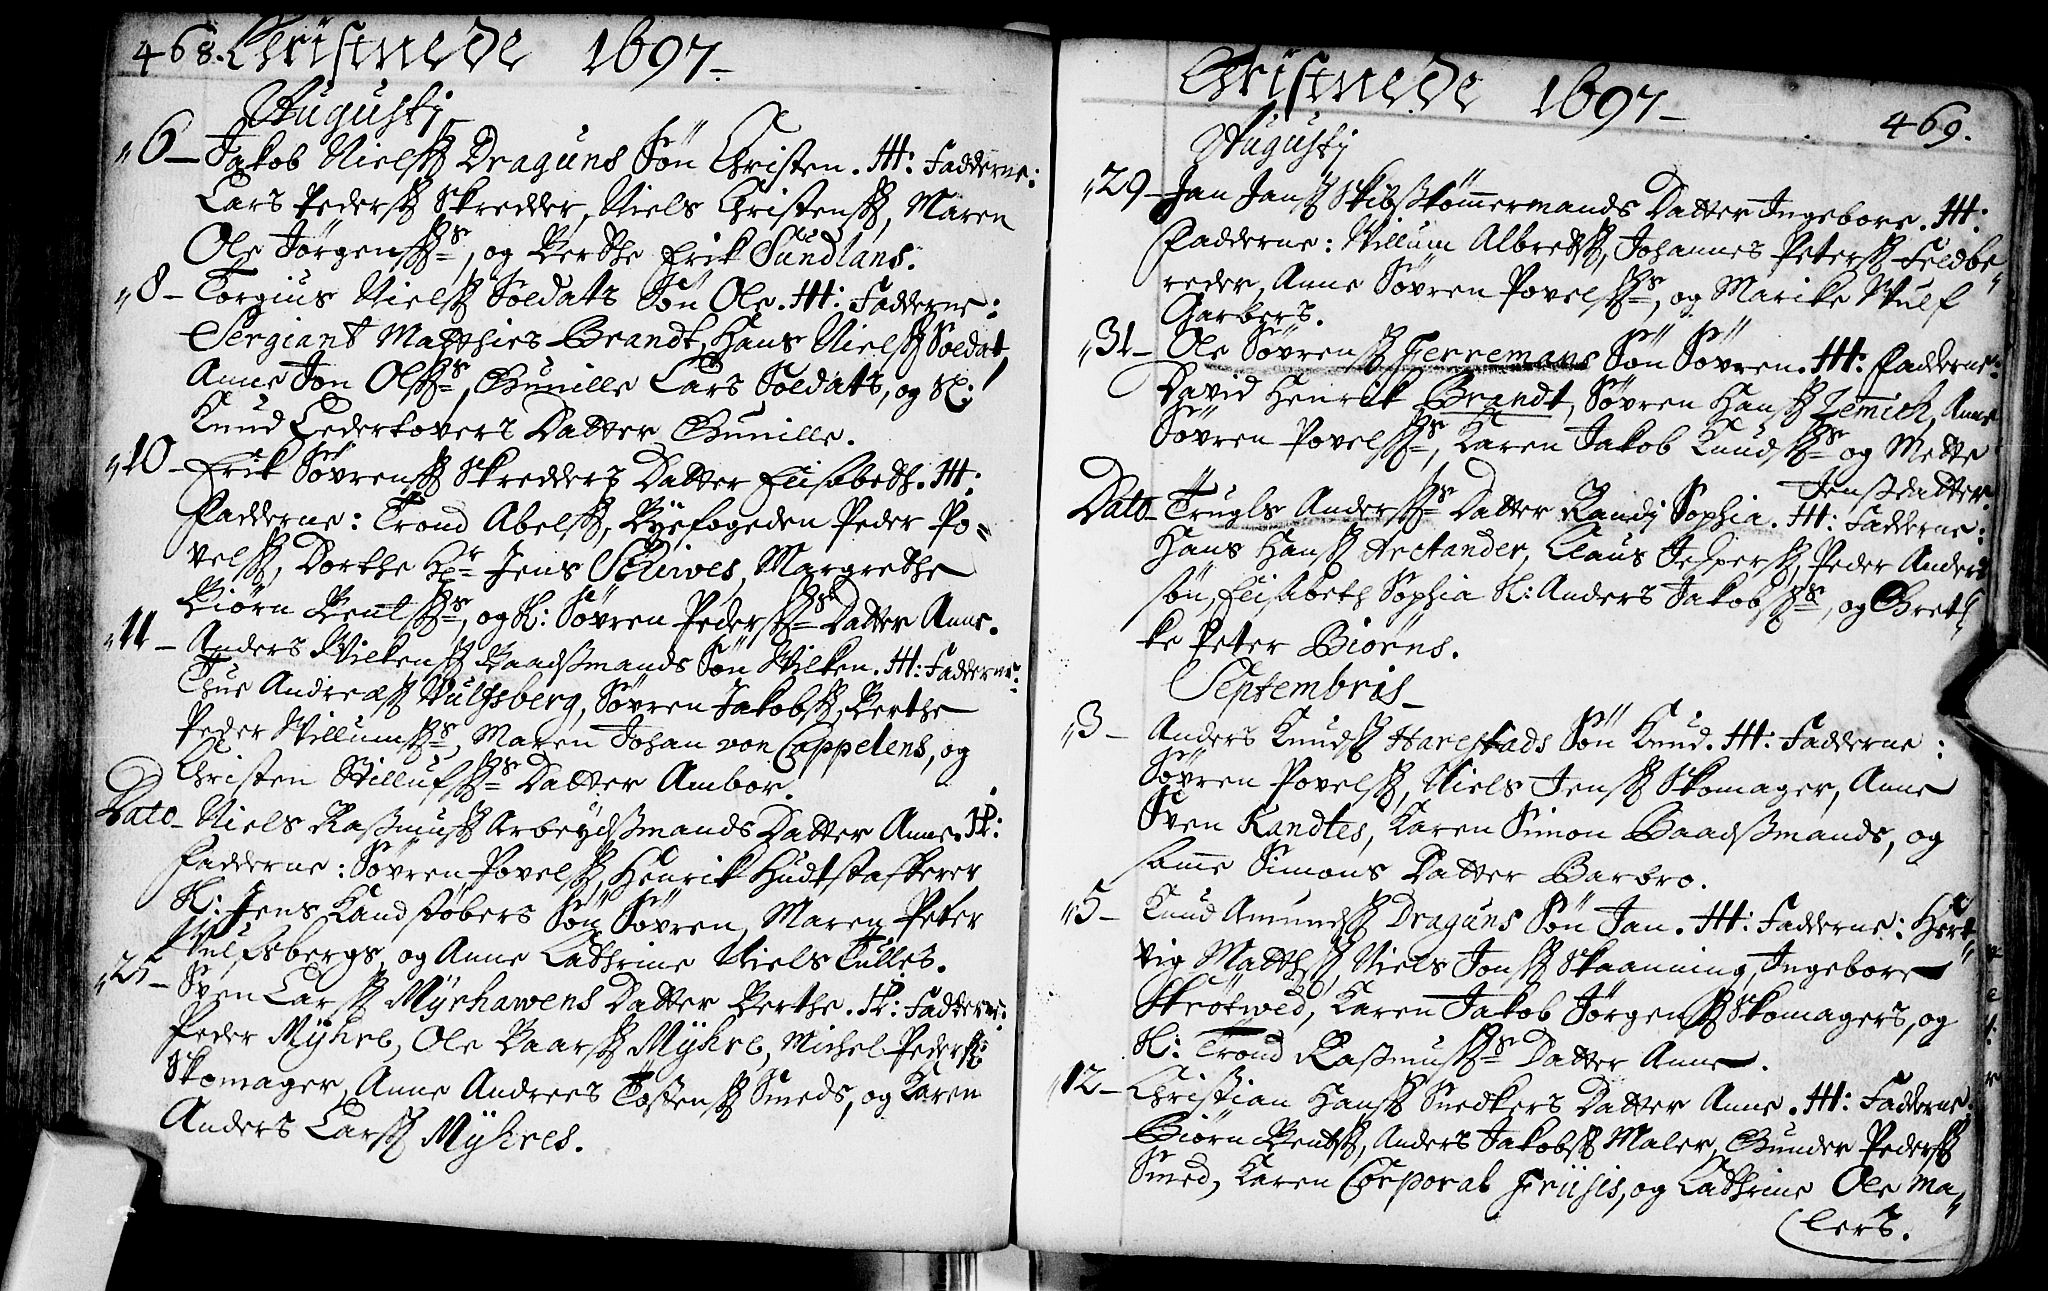 468. Christnede 1697.
Augustj
6 Jakob Nielss. Draguns Søn Christen. H: Fadderne:
Lars Pederss. Skredder, Niels Christenss., Maren
Ole Jörgenss.s, og Berthe Erik Sundlans.
8 Torgius Nielss. Soldats Søn Ole. H: Fadderne:
Sergiant Matthies Brandt, Hans Nielss. Soldat,
Anne Jon Olss.s, Gunille Lars Soldats, og Sl:
Knud Lederhovers Datter Gunille.
10 Erik Søvrenss. Skredders Datter Elisabeth. H:
Fadderne: Trond Abelss., Byefogeden Peder Po-
velss., Dorthe Hr Jens Schiwes, Margrethe
Biörn Bentss.s, og Sl: Søvren Pederss.s Datter Anne.
11 Anders Wilkenss. Baadsmands Søn Wilken. H: Fadderne:
Thue Andreæss. Wulfsberg, Søvren Jakobss., Berthe
Peder Willumss.s, Maren Johan von Cappelens, og
Christen Stillufss.s Datter Ambor.
Dato Niels Rasmuss. Arbeydsmands Datter Anne. H:
Fadderne: Søvren Povelss., Henrik Hudtstafferer
Sl: Jens Kandstøbers Søn Søvren, Maren Peter
Wulfsbergs, og Anne Cathrine Niels Tulles.
25 Sven Larss. Myrhawens Datter Berthe. H: Fadderne:
Peder Myhre, Ole Baarss. Myhre, Michel Pederss.
Skomager, Anne Andrees Tostenss. Smeds, og Karen
Anders Larss. Myhres.
Christnede 1697 469.
Augustj
29 Jan Janss. Skibstømmermands Datter Ingebore. H:
Fadderne: Willum Albretss., Johannes Peterss. Feldbe-
reder, Anne Søvren Povelss.s, og Marike Wulf
Garbers.
31 Ole Søvrenss. Ferremans Søn Søvren. H: Fadderne:
David Henrik Brandt, Søvren Hanss. Zemich, Anne
Søvren Povelss.s, Karen Jakob Knudss.s og Mette
Jensdatter.
Dato Trugls Anderss.s Datter Randj Sophia. H: Fadderne:
Hans Hanss. Arctander, Claus Jesperss., Peder Anders
søn, Elisabeth Sophia Sl: Anders Jakobss.s, og Greth-
ke Peter Biørns.
Septembris
3 Anders Knudss. Harestads Søn Knud. H: Fadderne:
Søvren Povelss., Niels Jenss. Skomager, Anne
Sven Kandtes, Karen Simon Baadsmands, og
samme Simons Datter Barbro.
5 Knud Amundss. Draguns Søn Jan. H: Fadderne: Hert-
vig Matthss., Niels Jonss. Skaanning, Ingebore
Skrötwed, Karen Jakob Jörgenss. Skomagers, og
Sl: Trond Rasmuss.s Datter Anne.
12 Christian Hanss. Snedkers Datter Anne. H: Fadderne:
Biörn Bentss., Anders Jakobss. Maler, Gunder Pederss.
Smed, Karen Corporal Friisis, og Cathrine Ole Ma-
lers.